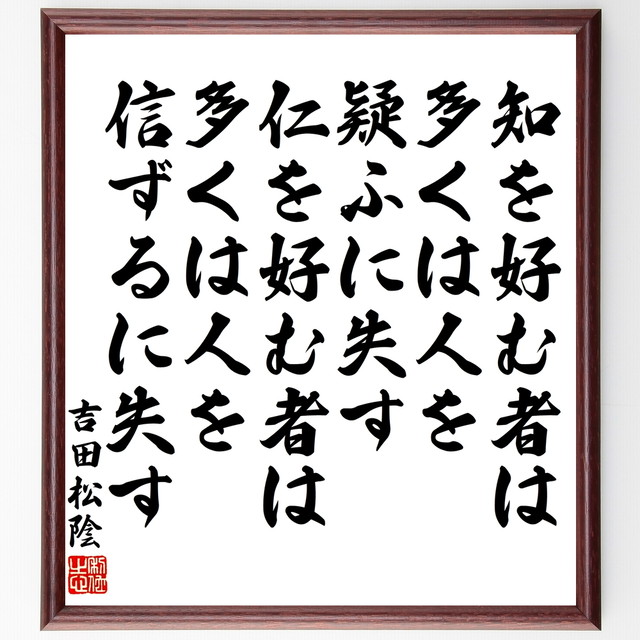 知を好む者は
多くは人を
疑ふに失す
仁を好む者は
多くは人を
信ずるに失す
吉田松陰